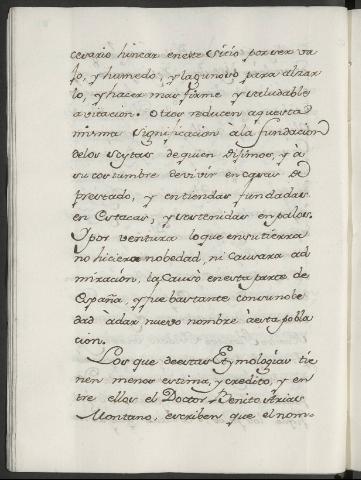 cesario hincar en este sicio por ser va
jo, y humedo, y lagunoso para alzar
lo, y hacer mas firme y saludable
avitacion. Otros reducen aquesta
misma significacion à la fundacion
de los Scytas de quien diximos, y à
su costumbre de vivir en casas de
prestado, y en tiendas fundadas
en Estacas, y sostenidas en palos.
Y por ventura lo que en su tierra
no hiciera nobedad, ni causara ad
miracion, la causò en esta parte de
España, y fue bastante con su nobe
dad à dar nuevo nombre à esta pobla
cion.
Los que de estas Etymologias tie
nen menos estima, y credito, y en
tre ellos el Doctor Benito Arias
Montano, escriben que el nom-